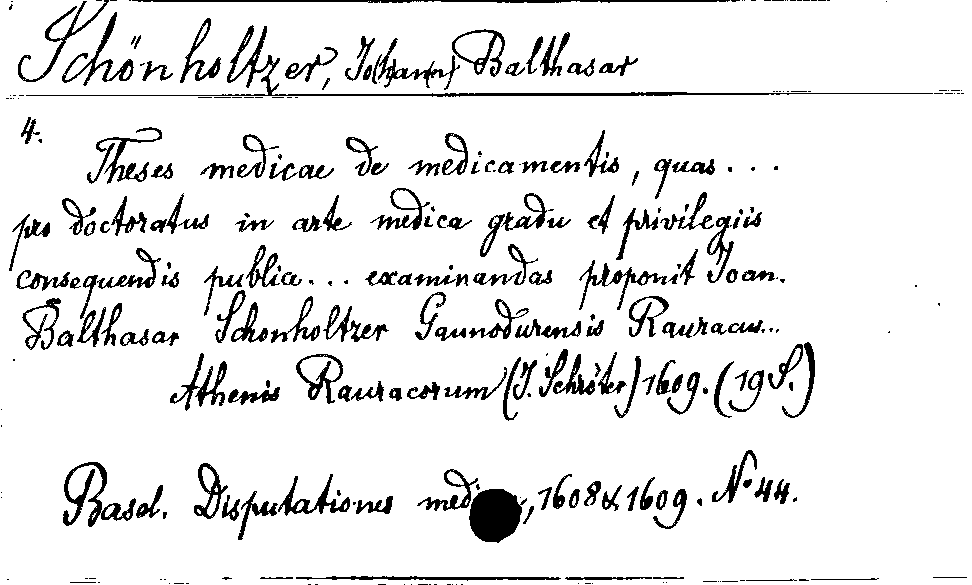 Schönholtzer, Jo(h)an(n) Balthasar
4.
Theses medicae de medicamentis, quas...
pro doctoratus in arte medica gradu et privilegiis
consequendis publice... examinandas proponit Joan.
Balthasar Schonholtzer Gaunodurensis Rauracus...
Athenis Rauracorum (J. Schröter) 1609. (19 S.)
Basel. Disputationes , 1608 & 1609. No 44.